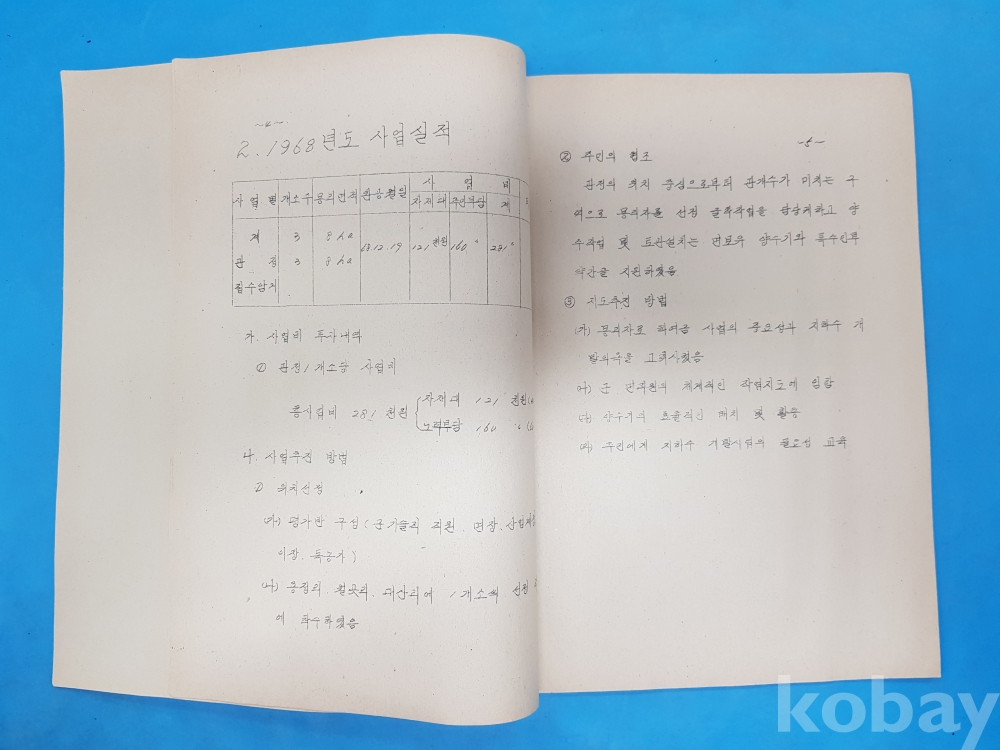 -4-
2. 1968년도 사업실적
사업별 개소수 몽리면적 준공월일 사 업 비
자재대 주민부담 계
계 3 8ha 68.12.19 121천원 160〃 281〃
관 정 3 8ha
집수암거
가. 사업비 투자내역
① 관정 1개소당 사업비
총사업비 281 천원 자재대 121 천원
노력부담 160 〃
나. 사업추진 방법
① 위치선정
(가) 평가반 구성 (군기술직 직원, 면장, 산업계장
이장, 독농가)
(나) 용정리, 월곳리, 대산리에 1개소씩 선정
에 착수하였음
-5-
② 주민의 협조
관정의 위치 중심으로부터 관개수가 미치는 구
역으로 몽리자를 선정 굴착작업을 담당케하고 양
수작업 및 토관설치는 면보유 양수기와 특수인부
약간을 지원하였음
③ 지도추진 방법
(가) 몽리자로 하여금 사업의 중요성과 지하수 개
발의욕을 고취시켰음
(나) 군 면직원의 체계적인 작업지도에 임함
(다) 양수기의 효율적인 배치 및 활용
(라) 주민에게 지하수 개발사업의 필요성 교육
kobay